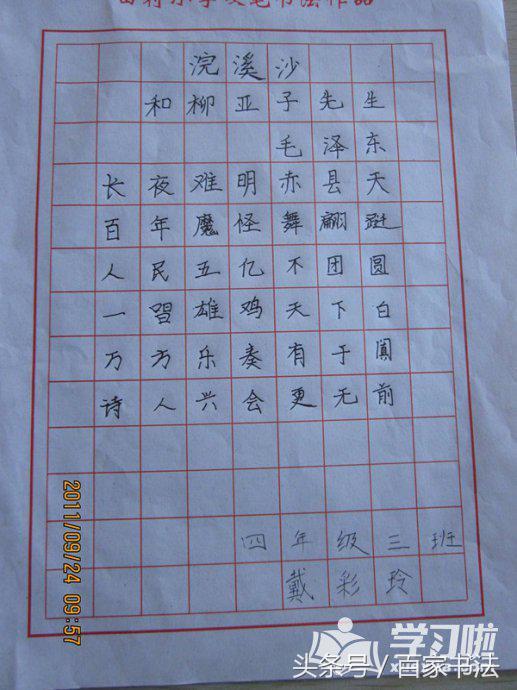 浣溪沙
和柳亚子先生
毛泽东
长夜难明赤县天
百年魔怪舞翩跹
人民五亿不团圆
一唱雄鸡天下白
万方乐奏有于阗
诗人兴会更无前
四年级三班
戴彩玲
2011/09/24 09:57
学习啦
头条号/百家书法